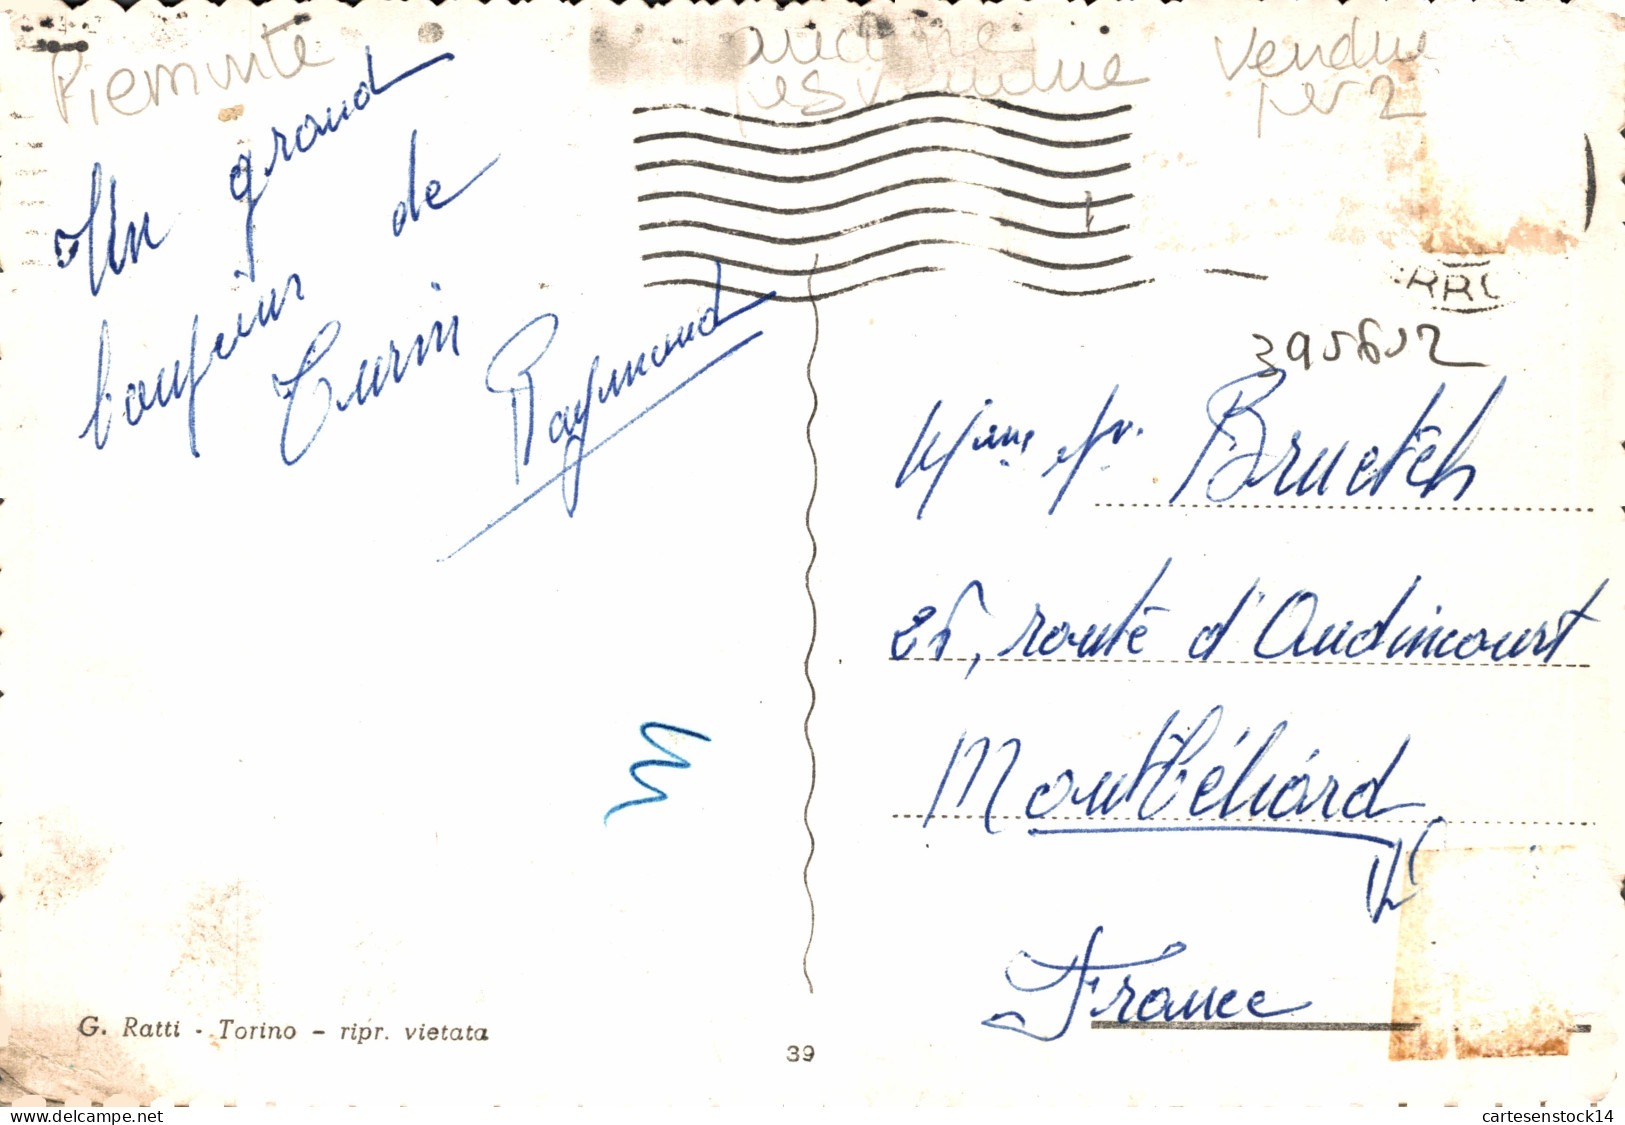 Piemonte
Vendue
Un grand
bonjour de
Turin
Raymond
3956512
Mme et Mr. Bruetsch
26, route d'Audincourt
Montbéliard
France
G. Ratti - Torino - ripr. vietata
39
delcampe.net
cartesenstock14